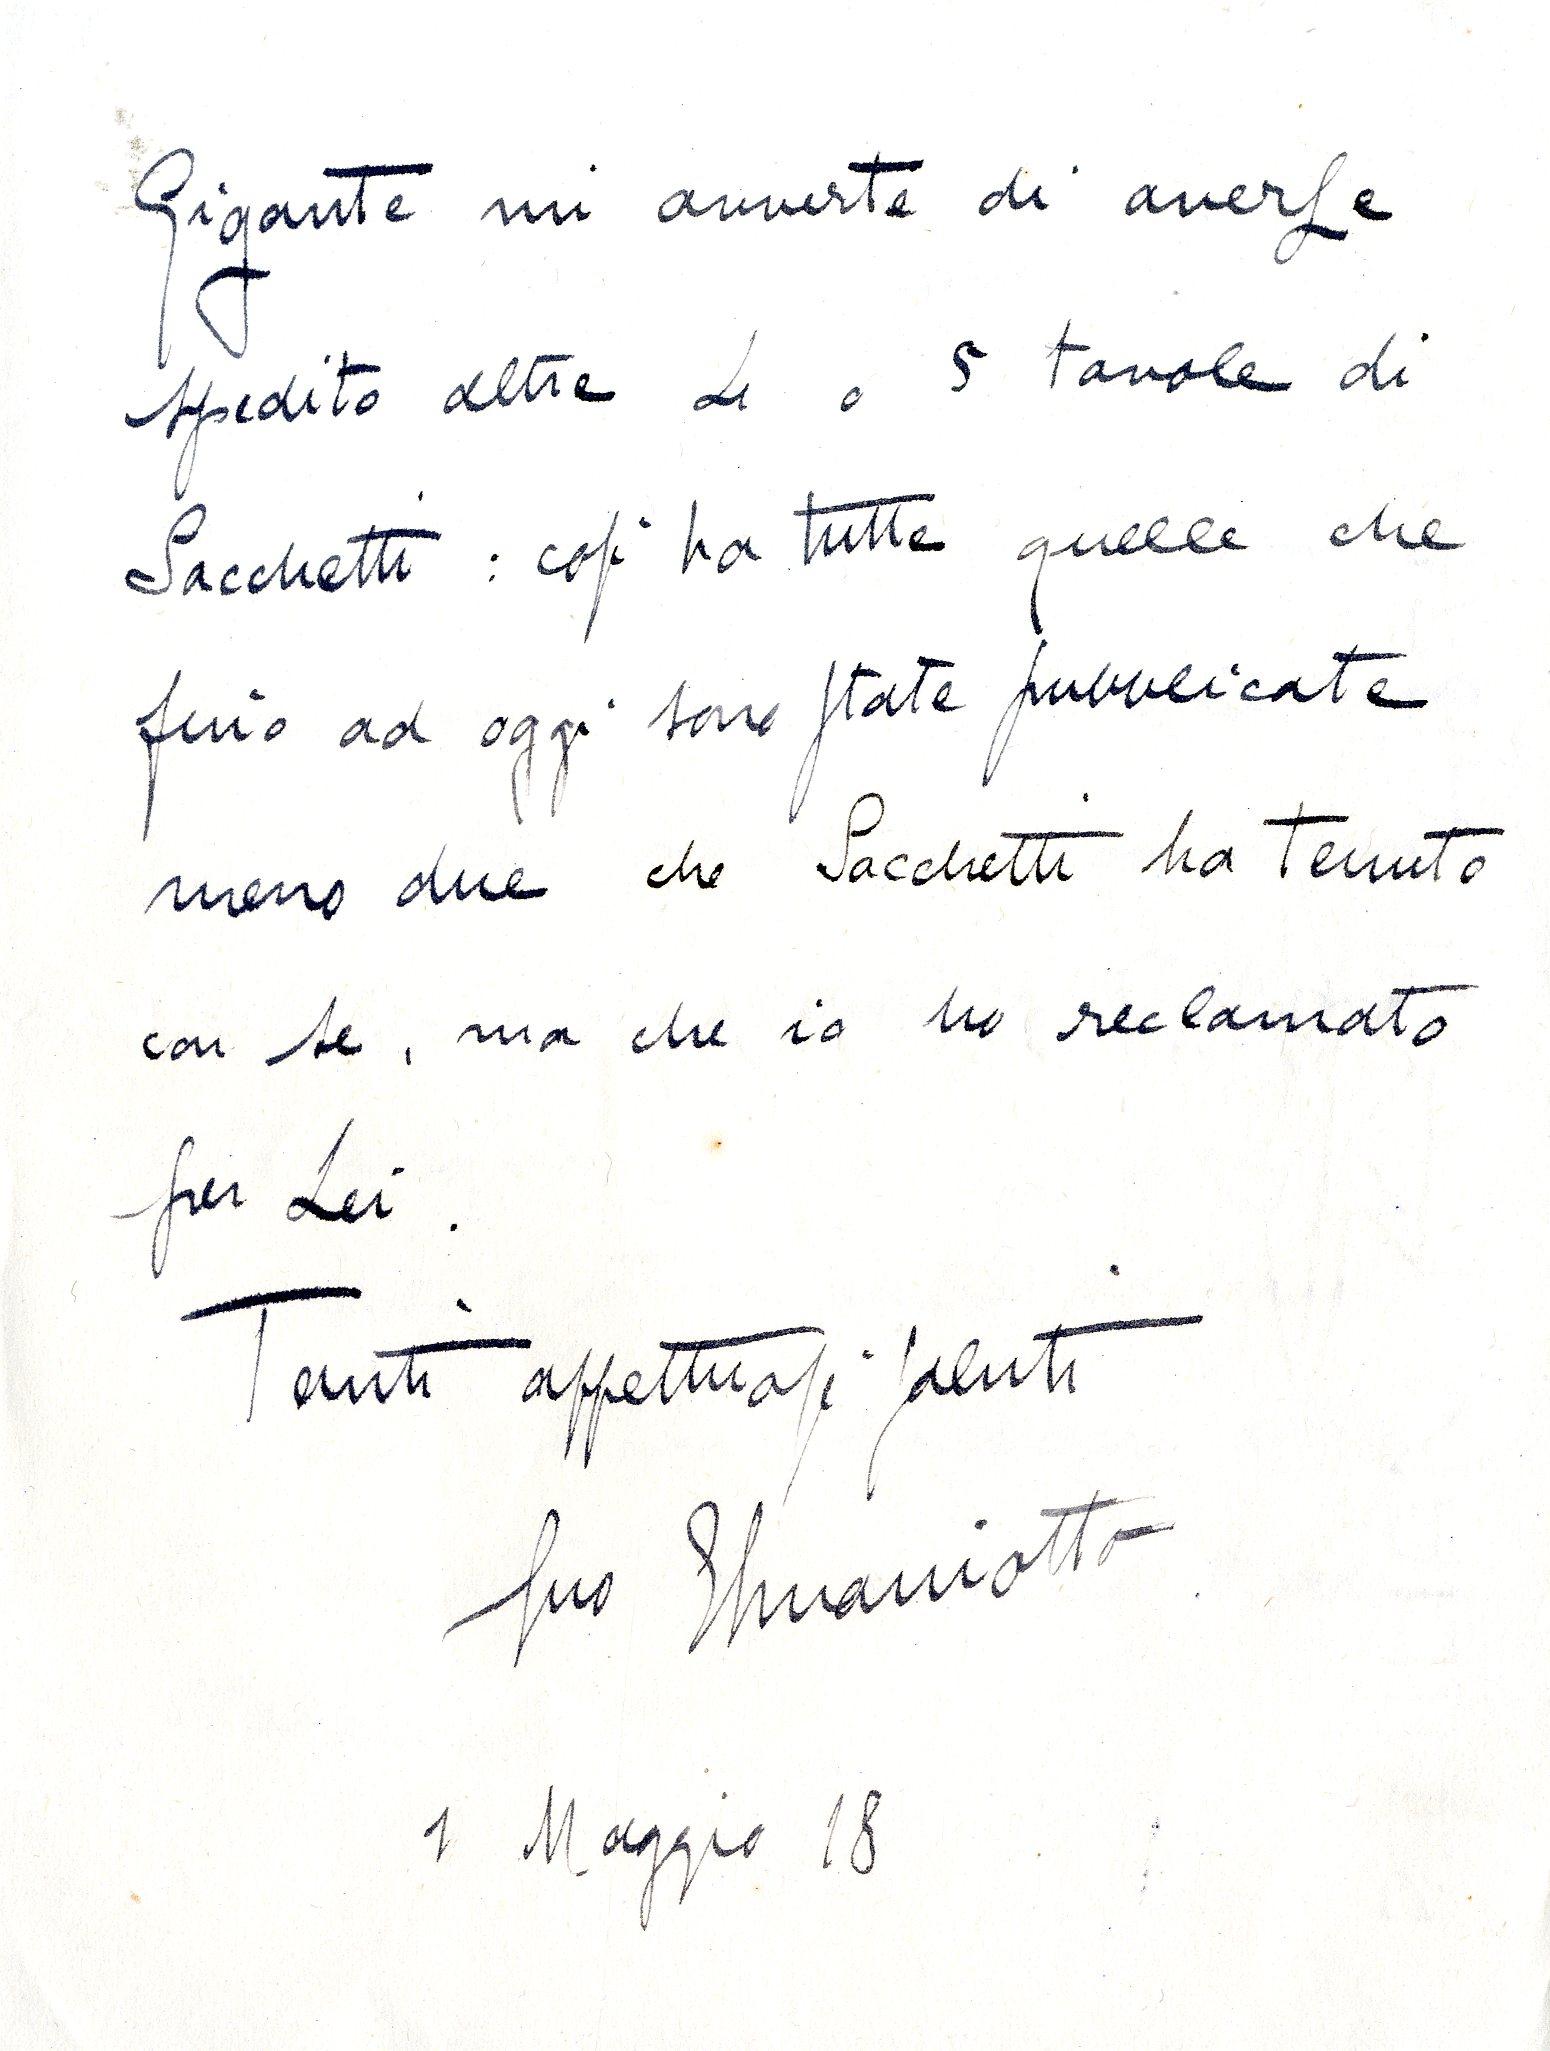 Gigante mi avverte di averLe
spedito altre 4 o 5 tavole di
Sacchetti : così ha tutte quelle che
fino ad oggi sono state pubblicate
meno due che Sacchetti ha tenuto
con se, ma che io ho reclamato
per Lei.
Tanti affettuosi saluti
suo
1 Maggio 18